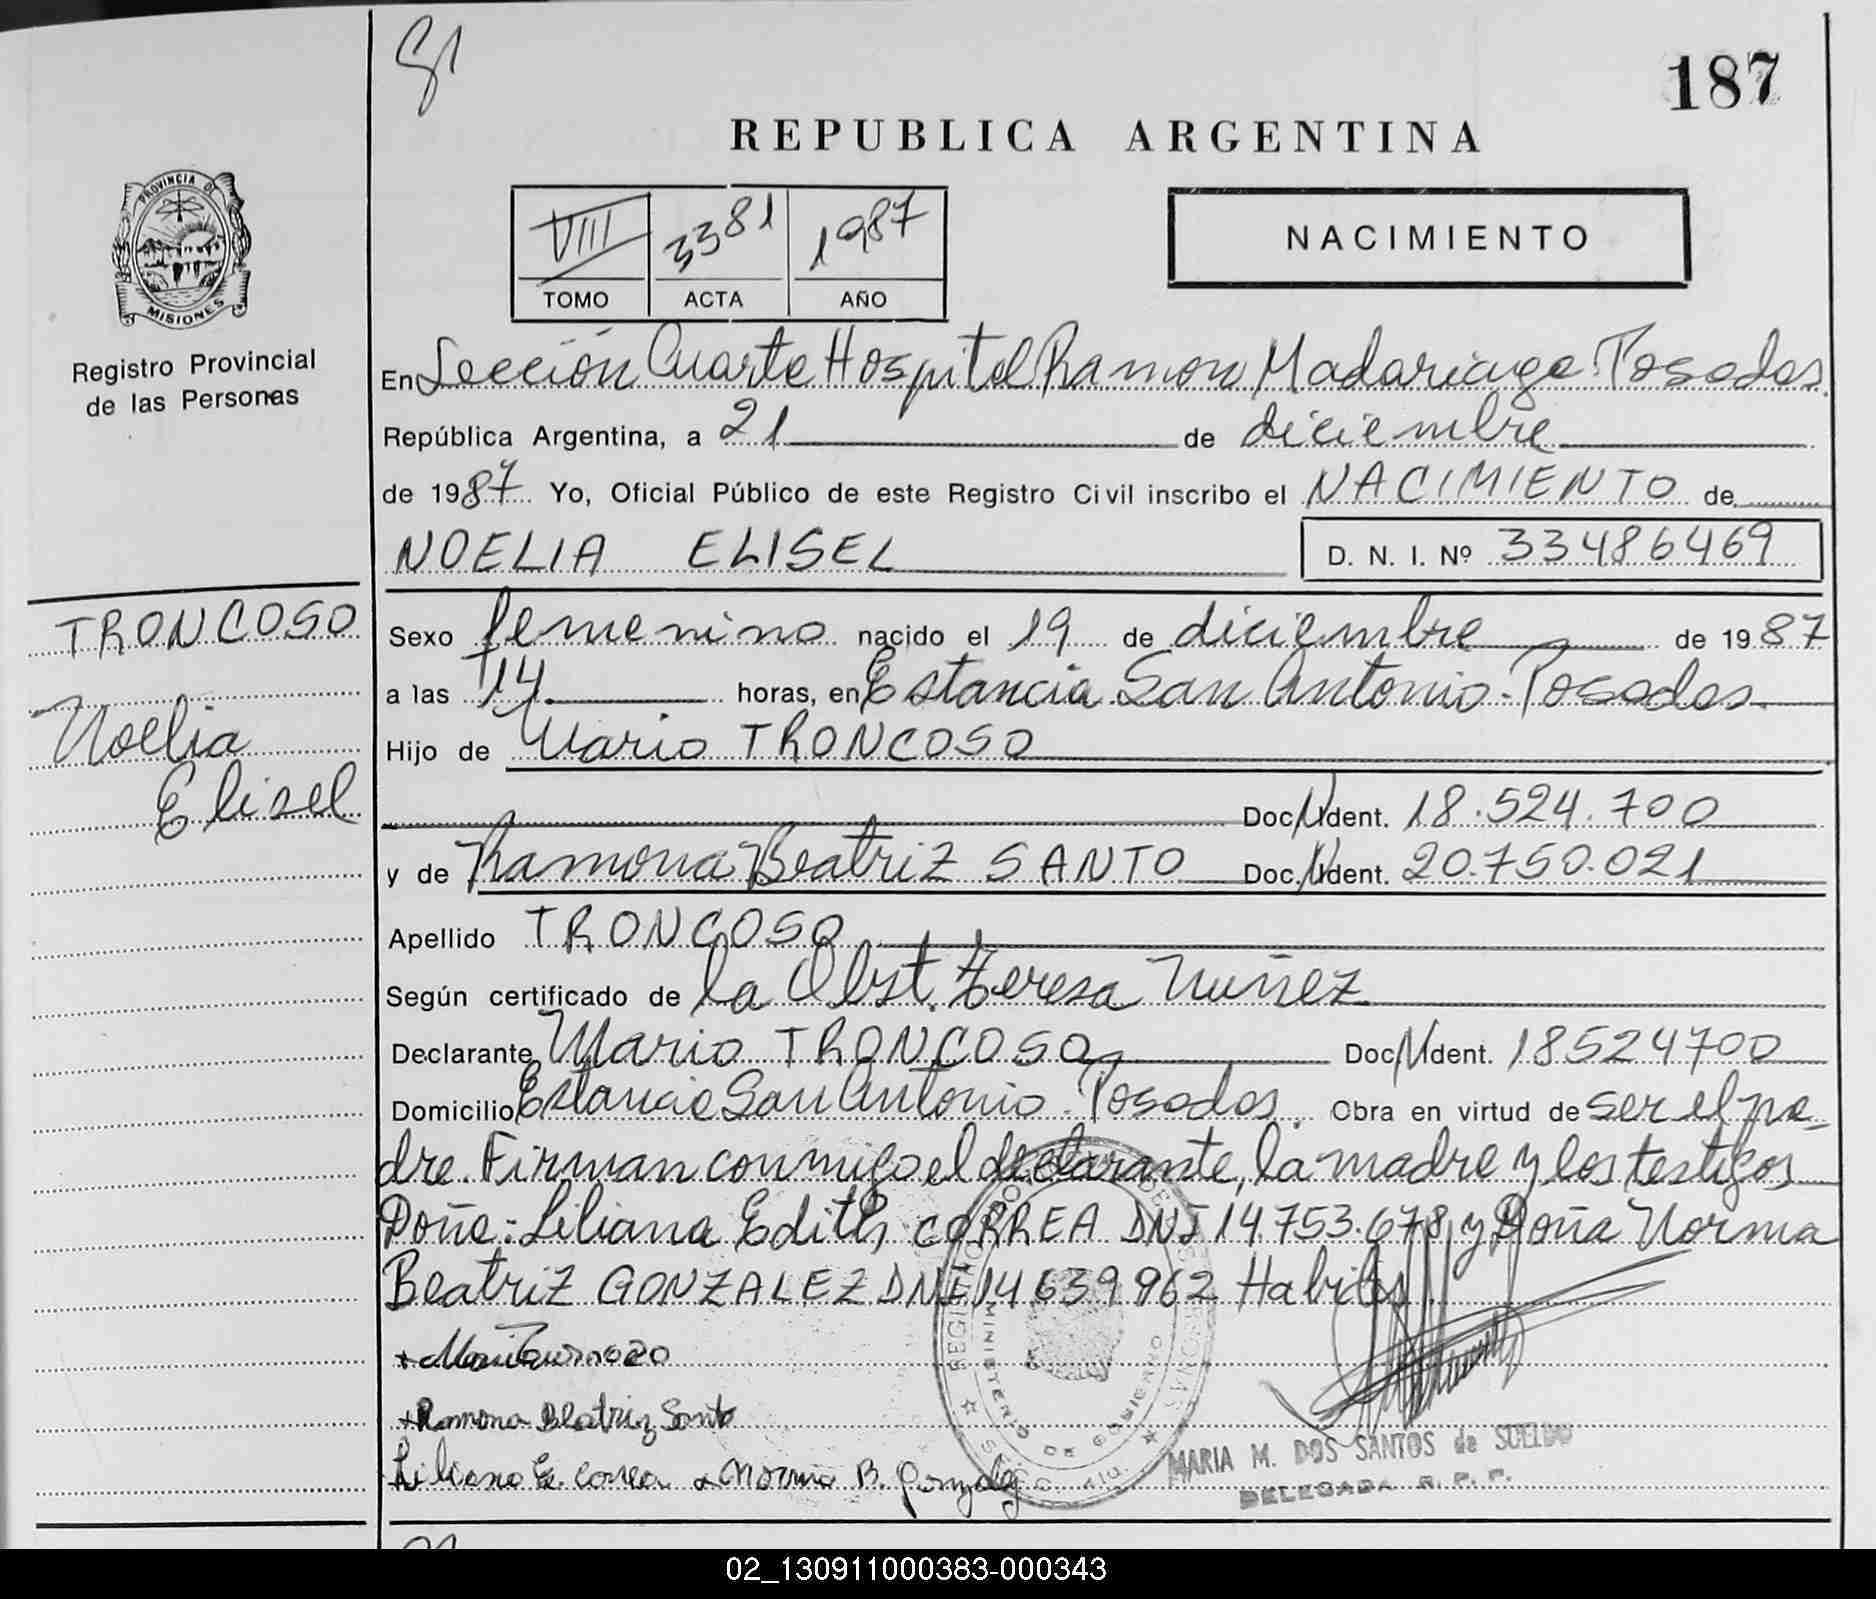 187
REPUBLICA ARGENTINA
PROVINCIA D
MISIONES
Registro Provincial
de las Personas
VIII 3381 1987
TOMO ACTA AÑO
NACIMIENTO
En Sección Cuarta Hospital Ramon Madariaga Posadas
República Argentina, a 21 de diciembre
de 1987 Yo, Oficial Público de este Registro Civil inscribo el NACIMIENTO de
NOELIA ELISEL D. N. I. Nº 33486469
TRONCOSO
Noelia
Elisel
Sexo femenino nacido el 19 de diciembre de 1987
a las 14 horas, en Estancia San Antonio-Posadas
Hijo de Mario TRONCOSO
Doc. Ident. 18.524.700
y de Ramona Beatriz SANTO Doc. Ident. 20.750.021
Apellido TRONCOSO
Según certificado de la Obst. Teresa Nuñez
Declarante Mario TRONCOSO Doc. Ident. 18524700
Domicilio Estancia San Antonio-Posadas. Obra en virtud de ser el pa-
dre. Firman conmigo el declarante, la madre y los testigos
Doña: Liliana Edith CORREA DNI 14.753.678 y Doña Norma
Beatriz GONZALEZ DNI 14639962 Habiles
+ Ramona Beatriz Santo
Liliana E. Correa + Norma B. Gonzalez
MINISTERIO DE GOBIERNO
MARIA M. DOS SANTOS de SUELDO
DELEGADA R. P. P.
02_130911000383-000343